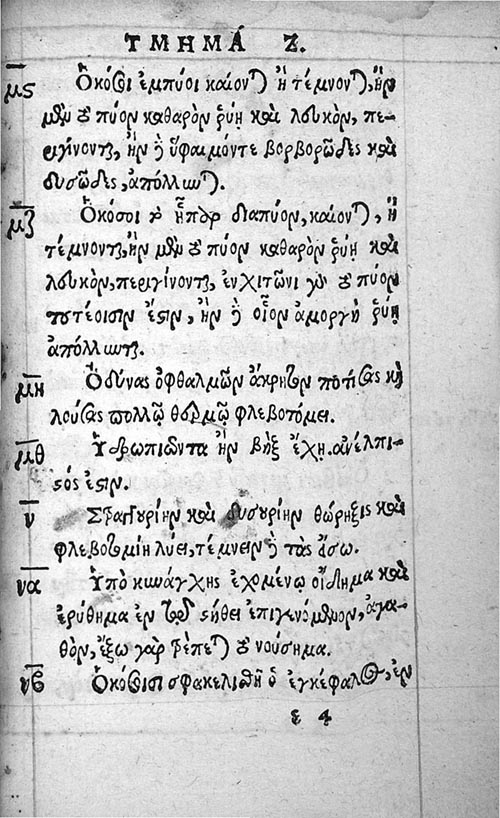 ΤΜΗΜΆ Ζ.
μς Ὁκόσοι ἐμπύοι καίονται ἢ τέμνονται, ἢν
μὲν τὸ πύον καθαρὸν ῥύῃ καὶ λευκὸν, πε-
ριγίνονται, ἢν δὲ ὕφαιμόν τε βορβορῶδες καὶ
δυσῶδες, ἀπόλλωται.
μζ Ὁκόσοι τὸ ἧπαρ διαπύον, καίονται, ἢ
τέμνονται, ἢν μὲν τὸ πύον καθαρὸν ῥύῃ καὶ
λευκὸν, περιγίνονται, ἐν χιτῶνι γὰρ τὸ πύον
τουτέοισιν ἐστιν, ἢν δὲ οἷον ἀμοργὴ ῥύῃ
ἀπόλλωνται.
μη Ὀδύνας ὀφθαλμῶν ἄκρητον ποτίσας καὶ
λούσας πολλῷ θερμῷ φλεβοτόμει.
μθ Ὑδρωπιῶντα ἢν βὴξ ἔχῃ. ἀνέλπι-
στός ἐστιν.
ν Στραγγυρίην καὶ δυσουρίην θώρηξις καὶ
φλεβοτομίη λύει, τέμνειν δὲ τὰς ἔσω.
να Ὑπὸ κυνάγχης ἐχομένῳ οἴδημα καὶ
ἐρύθημα ἐν τῷ στήθει ἐπιγενόμενον, ἀγα-
θὸν, ἔξω γὰρ τρέπεται τὸ νούσημα.
νβ Ὁκόσοισι σφακελισθῇ ὁ ἐγκέφαλος, ἐν
ε 4